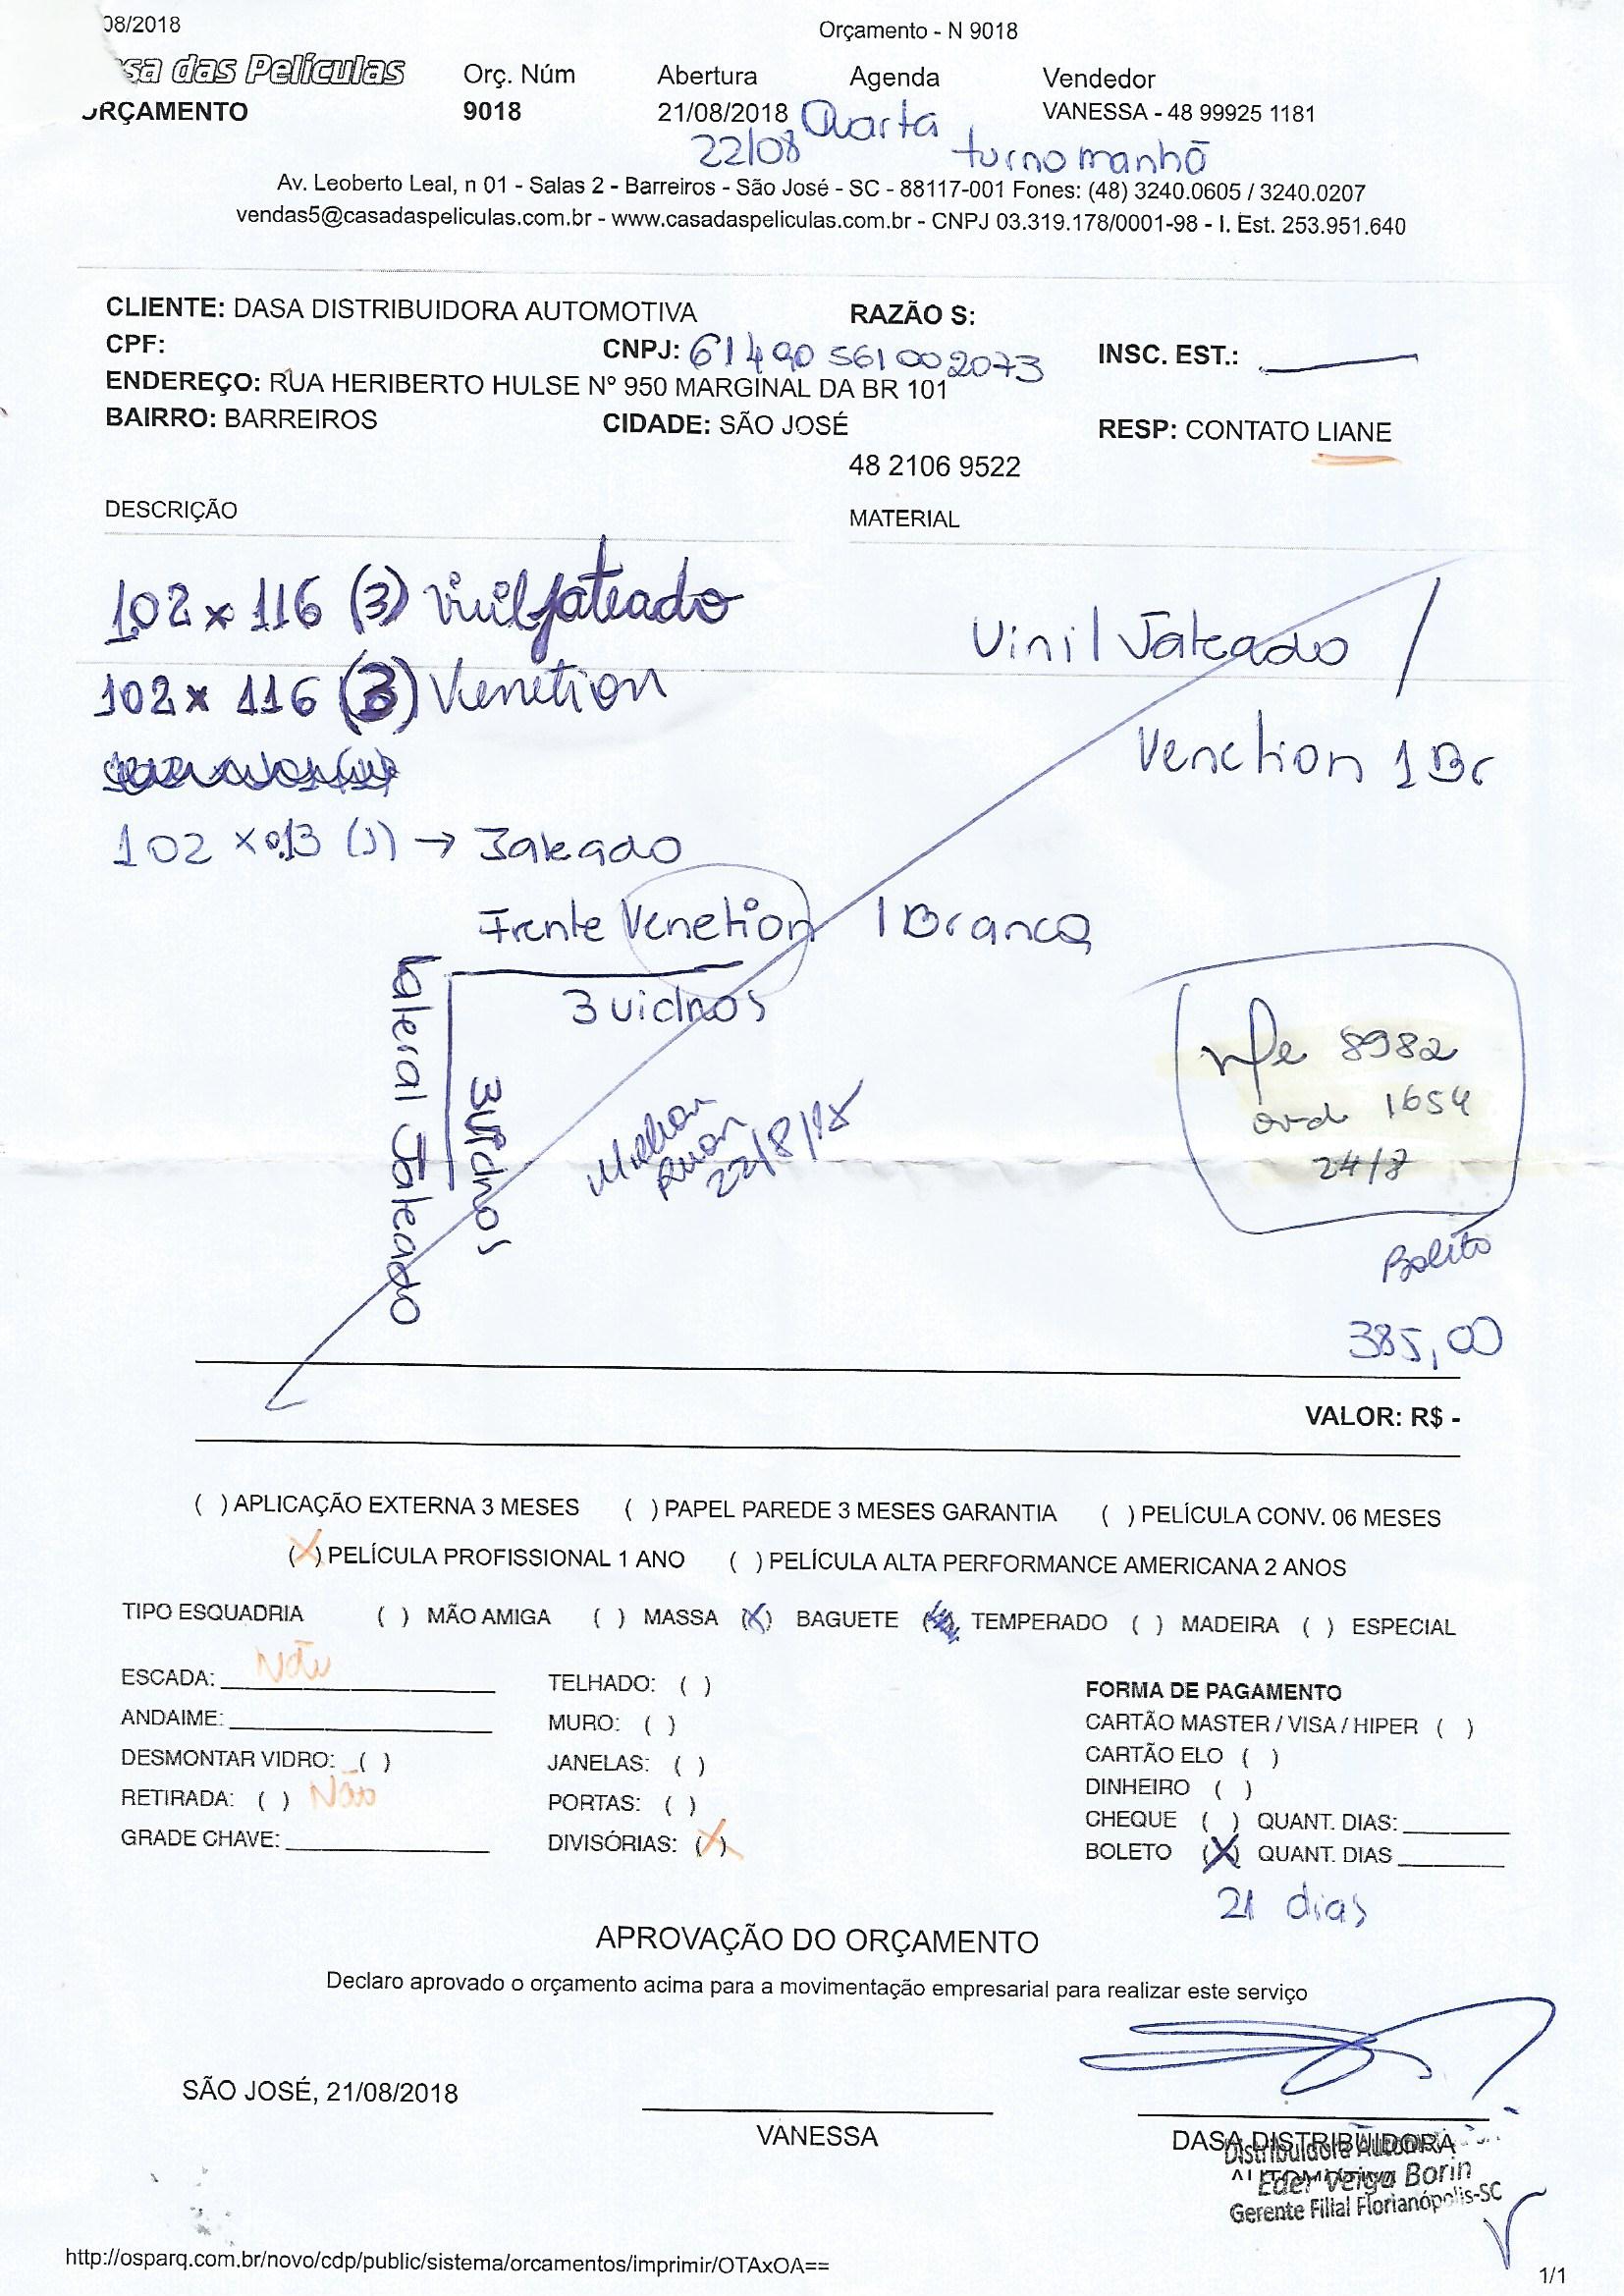 08/2018 Orçamento - N 9018
sa das Películas Orç. Núm Abertura Agenda Vendedor
ORÇAMENTO 9018 21/08/2018 Quarta VANESSA - 48 99925 1181
22/08 turno manhã
Av. Leoberto Leal, n 01 - Salas 2 - Barreiros - São José - SC - 88117-001 Fones: (48) 3240.0605 / 3240.0207
vendas5@casadaspeliculas.com.br - www.casadaspeliculas.com.br - CNPJ 03.319.178/0001-98 - I. Est. 253.951.640
CLIENTE: DASA DISTRIBUIDORA AUTOMOTIVA RAZÃO S:
CPF: CNPJ: 61490561002073 INSC. EST.:
ENDEREÇO: RUA HERIBERTO HULSE Nº 950 MARGINAL DA BR 101
BAIRRO: BARREIROS CIDADE: SÃO JOSÉ RESP: CONTATO LIANE
48 2106 9522
DESCRIÇÃO MATERIAL
102 x 116 (3) Vinil Jateado
Vinil Jateado /
102 x 116 (3) Venetion
Venetion 1 Br
102 x 0.13 (1) → Jateado
Frente Venetion 1 Branca
3 vidros
Lateral Jateado
3 vidros
nfe 8982
ord 1654
24/8
22/8/18
Boleto
385,00
VALOR: R$ -
( ) APLICAÇÃO EXTERNA 3 MESES ( ) PAPEL PAREDE 3 MESES GARANTIA ( ) PELÍCULA CONV. 06 MESES
(X) PELÍCULA PROFISSIONAL 1 ANO ( ) PELÍCULA ALTA PERFORMANCE AMERICANA 2 ANOS
TIPO ESQUADRIA ( ) MÃO AMIGA ( ) MASSA (X) BAGUETE ( ) TEMPERADO ( ) MADEIRA ( ) ESPECIAL
ESCADA: Não TELHADO: ( ) FORMA DE PAGAMENTO
ANDAIME: MURO: ( ) CARTÃO MASTER / VISA / HIPER ( )
DESMONTAR VIDRO: ( ) JANELAS: ( ) CARTÃO ELO ( )
RETIRADA: ( ) Não PORTAS: ( ) DINHEIRO ( )
GRADE CHAVE: DIVISÓRIAS: (X) CHEQUE ( ) QUANT. DIAS:
BOLETO (X) QUANT. DIAS
21 dias
APROVAÇÃO DO ORÇAMENTO
Declaro aprovado o orçamento acima para a movimentação empresarial para realizar este serviço
SÃO JOSÉ, 21/08/2018
VANESSA DASA DISTRIBUIDORA
AUTOMOTIVA
Eder Veiga Borin
Gerente Filial Florianópolis-SC
http://osparq.com.br/novo/cdp/public/sistema/orcamentos/imprimir/OTAxOA== 1/1